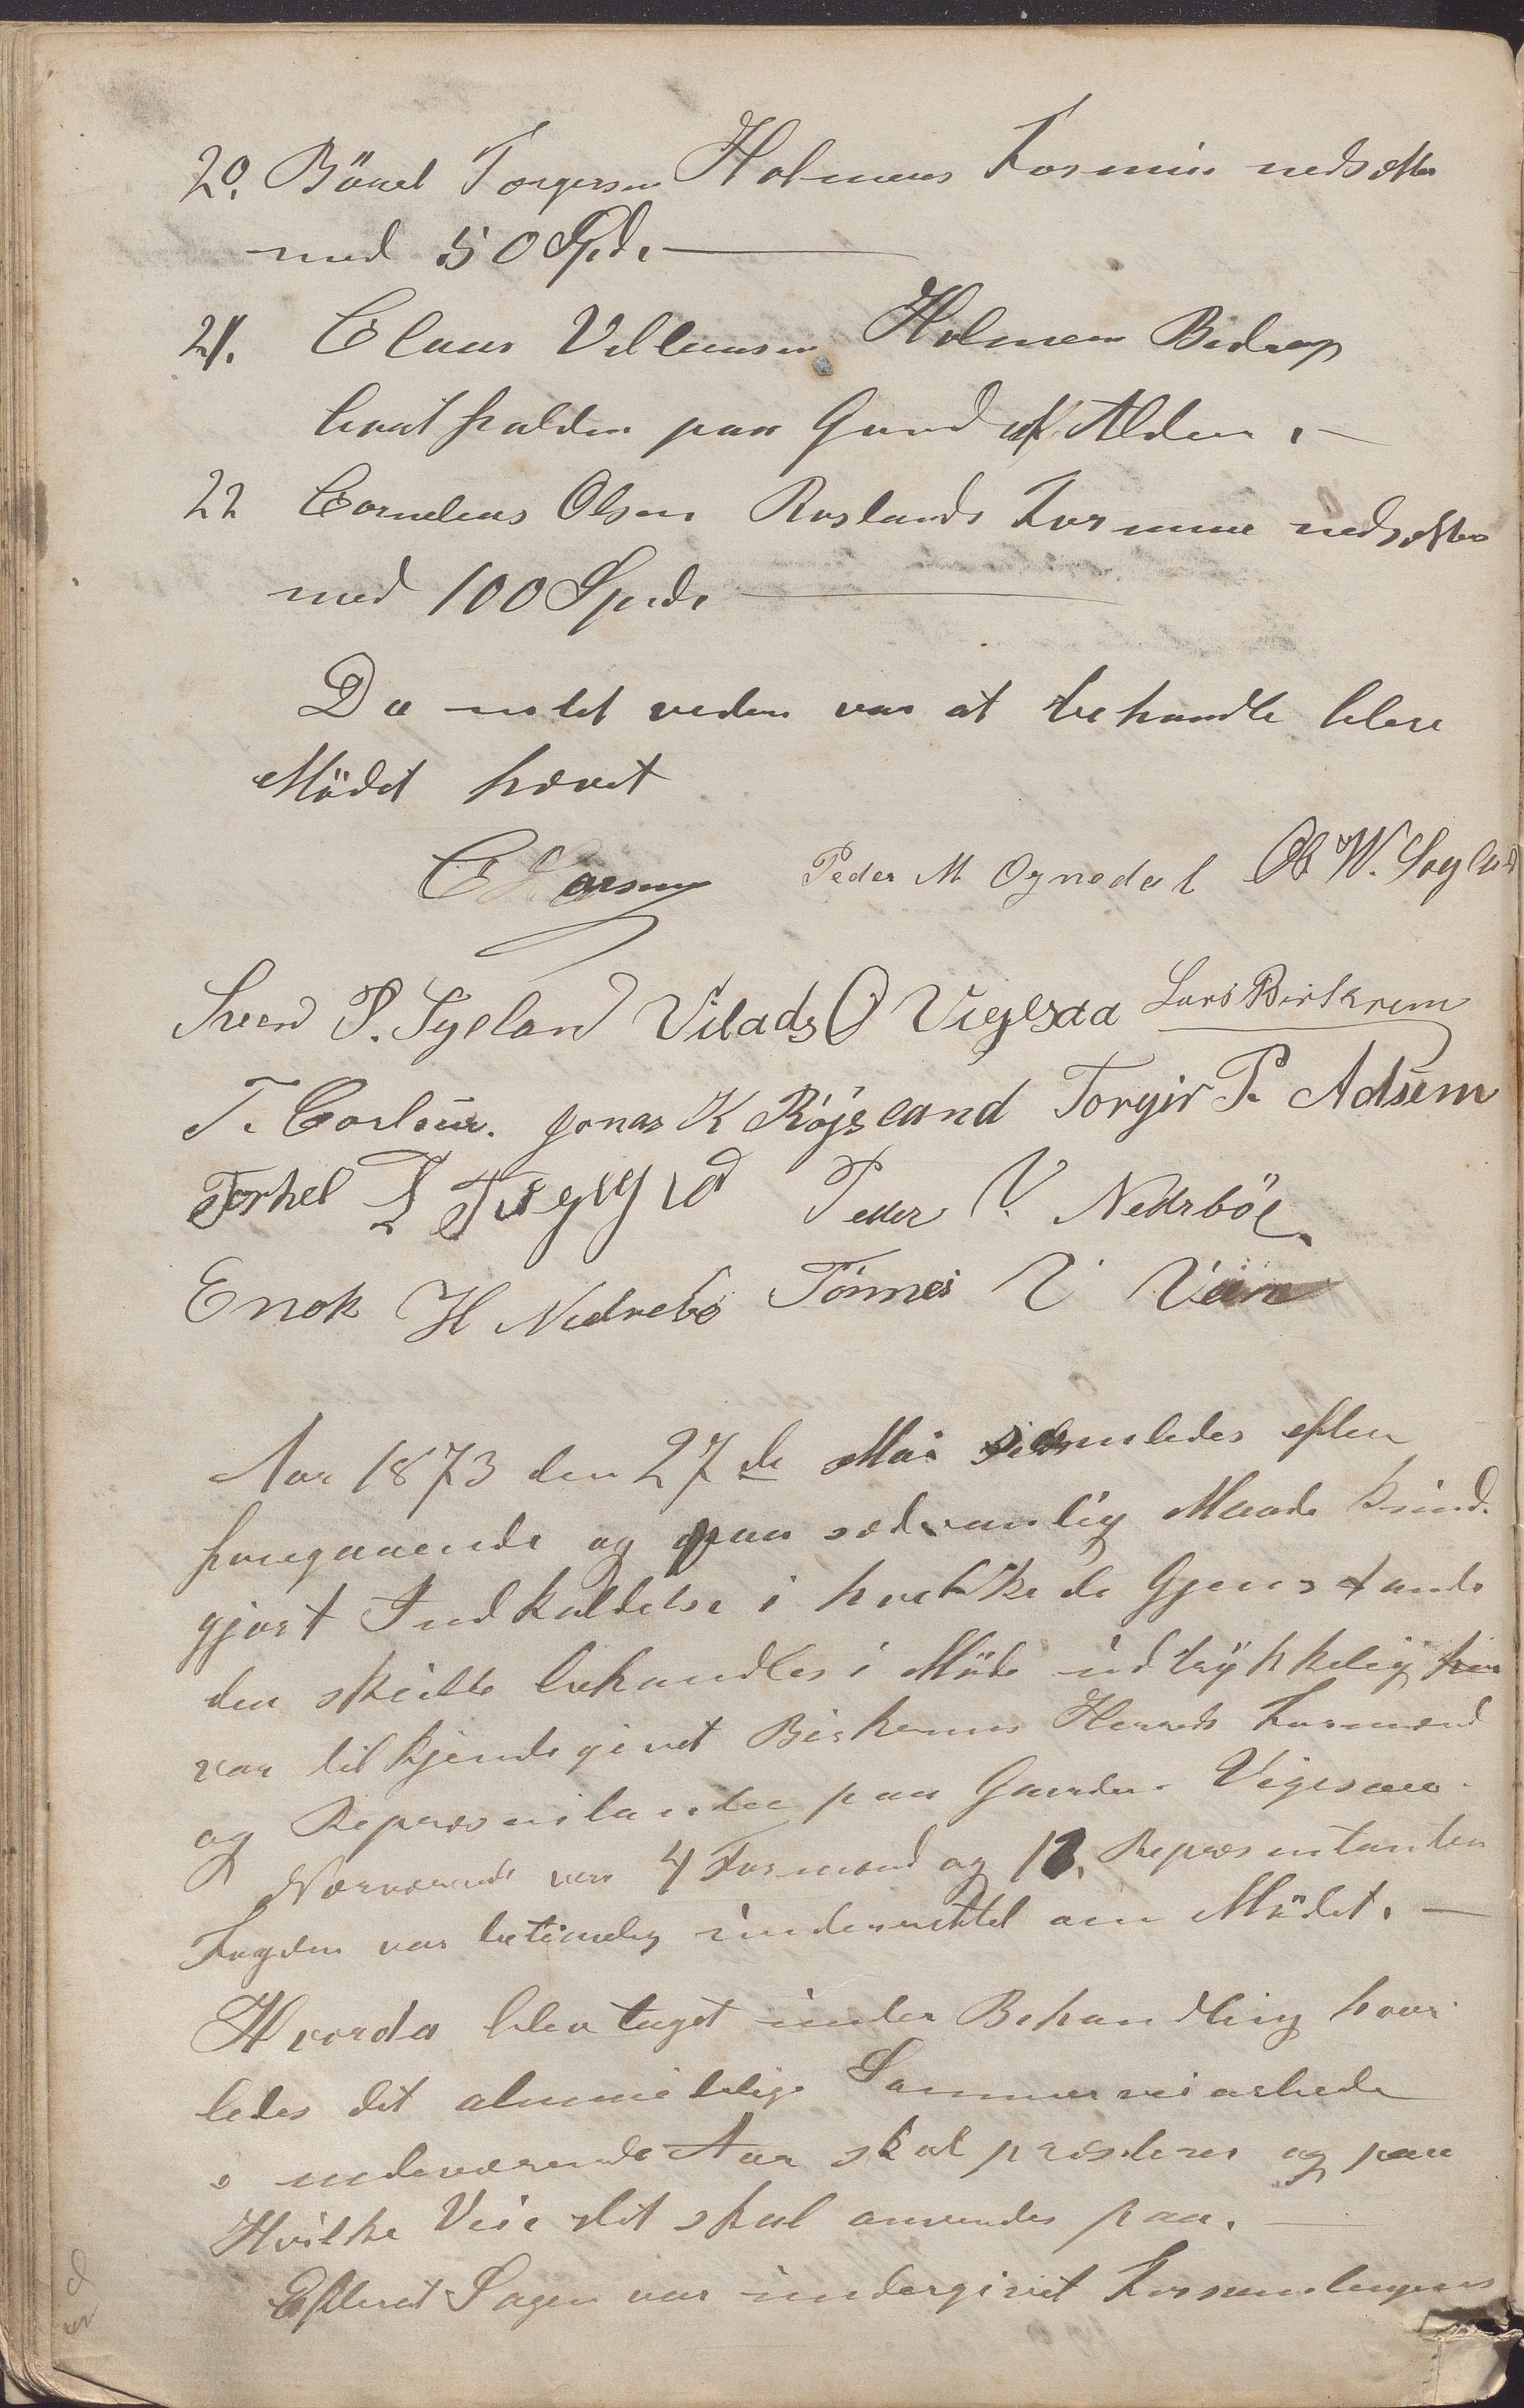 20. Börel Torgersen Holmens Formue nedsættes
med 50 Spd.
21. Claus Villumsen Holmen Bidrag
bortfalder paa Grund af Alder.
22 Cornelius Olsen Røslands Formue nedsættes
med 100 Spd.
Da intet videre var at behandle blev
Mödet hævet
C Larsen Peder M Ognedal Ole W. Sagland
Sven P. Syeland Vilads O Viglesaa Lars Birkrem
T. Carlsen. Jonas K Röjsland Torgir P. Adsem
Torkel Peder V. Nedrböe
Enok H Nedrebö Tönnes V
Aar 1873 den 27de Mai samledes efter
foregaaende og paa sædvanlig Maade kund-
gjort Indkaldelse i hvilke de Gjenstande
der skulle behandles i Möde udtrykkelig
var tilkjendegivet Birkrems Herreds Formænd
og Repræsentanter paa Gaarden Vigesaa.
Nærværende var 4 Formænd og 12. Repræsentanter
Fogden var betimelig underrettet om Mödet.
Hvorda blev taget under Behandling hvor-
ledes det almindelige Sommerveiarbeide
i indeværende Aar skal præsteres og paa
Hvilke Veie det skal anvendes paa.
Efterat Sagen var undergivet Forsamlingens